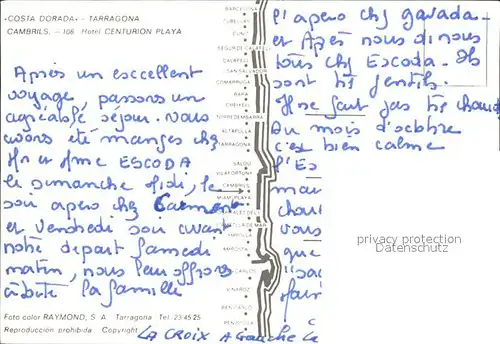 -COSTA DORADA- - TARRAGONA
CAMBRILS. - 106 Hotel CENTURION PLAYA
Après un esccellent
voyage, passons un
agréable séjour. nous
avons été manges chez
Mr et Mme ESCODA
le dimanche Midi, le
soir apero chez Carmen
et Vendredi soir avant
notre depart Samedi
matin, nous leur offrons
à boire la famille
Foto color RAYMOND, S. A. Tarragona Tel. 23 45 25
Reproducción prohibida Copyright
LA CROIX A Gauche
BARCELONA
CUBELLAS
CUNIT
SEGUR DE CALAFELL
CALAFELL
SAN SALVADOR
COMARRUGA
BARA
CREIXELL
TORREDEMBARRA
ALTAFULLA
TARRAGONA
SALOU
VILAFORTUNY
CAMBRILS
MIAMI PLAYA
AMPOLLA
AMPOSTA
VINAROZ
BENICARLO
PEÑISCOLA
l'apero chez gavada
et Après nous dinons
tous chez Escoda. Ils
sont très gentils.
Il ne fait pas très chaud
Au mois d'octobre
c'est bien calme
l'Es
mai
chau
vous
que
fair
privacy protection
Datenschutz